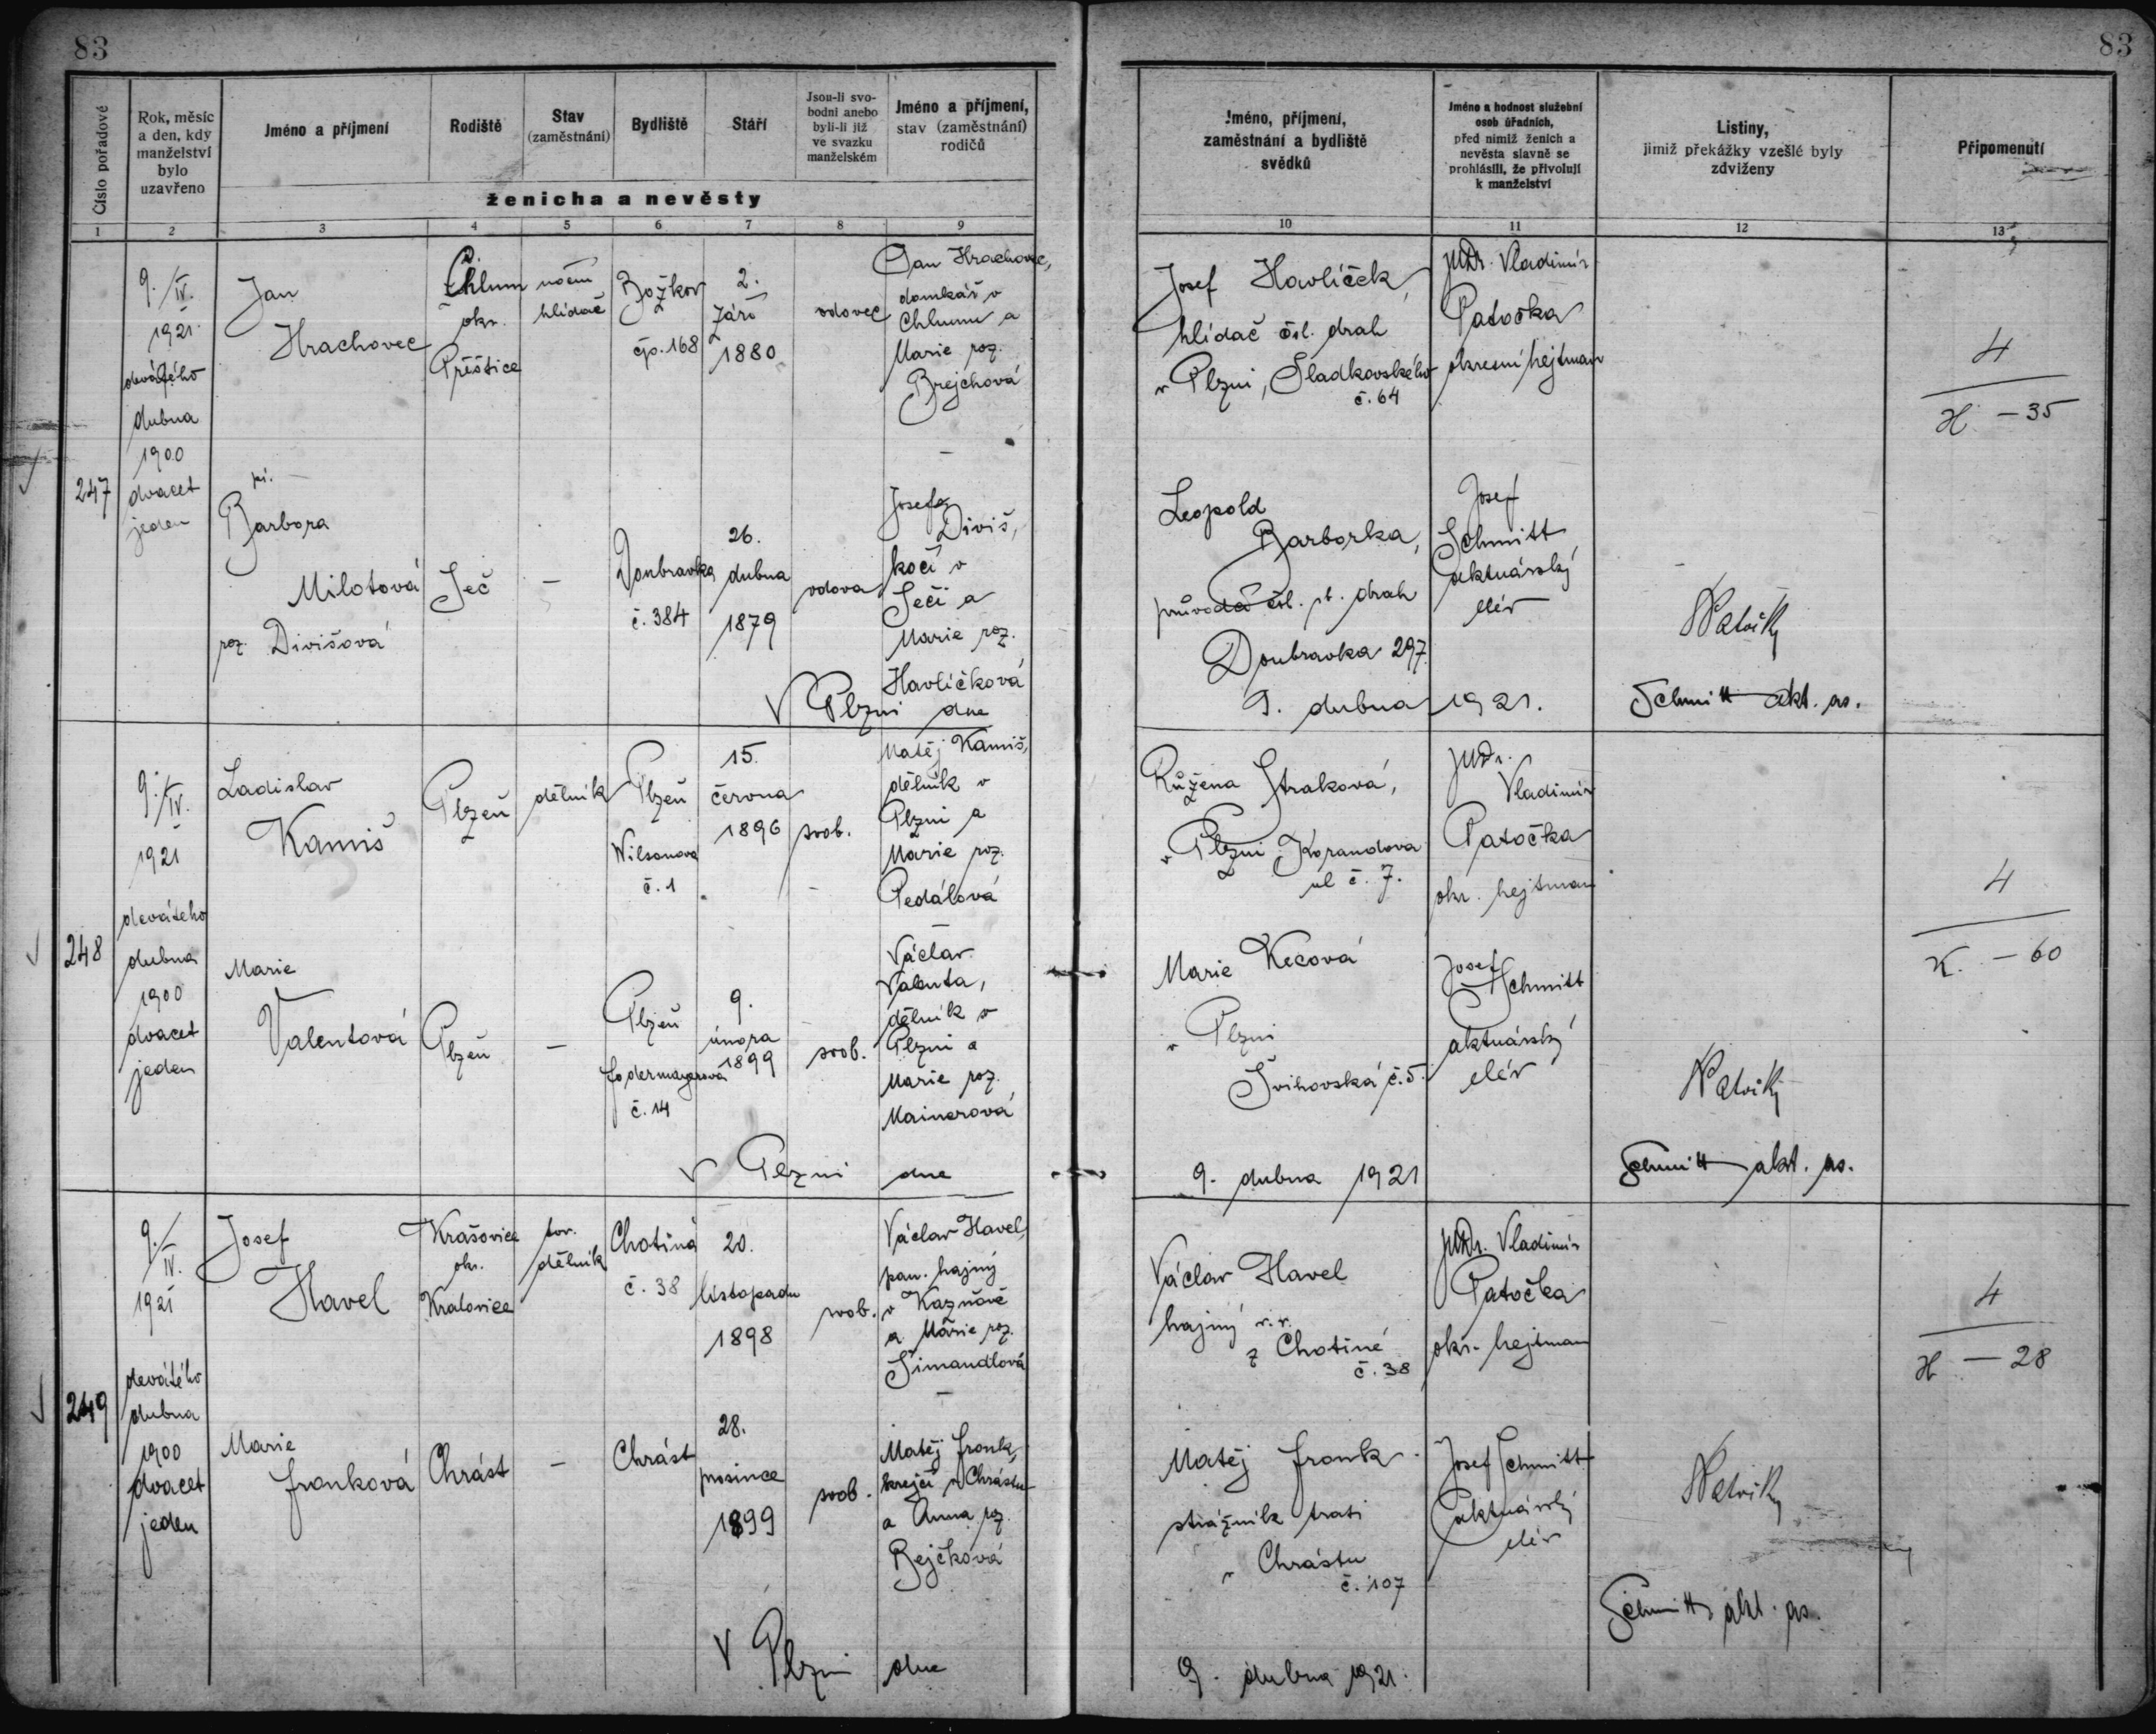 83
83
Číslo pořadové
Rok, měsíc
a den, kdy
manželství
bylo
uzavřeno
Jméno a příjmení
Rodiště
Stav
(zaměstnání)
Bydliště
Stáří
Jsou-li svo-
bodni anebo
byli-li již
ve svazku
manželském
Jméno a příjmení,
stav (zaměstnání)
rodičů
ženicha a nevěsty
Jméno, příjmení,
zaměstnání a bydliště
svědků
Jméno a hodnost služební
osob úřadních,
před nimiž ženich a
nevěsta slavně se
prohlásili, že přivolují
k manželství
Listiny,
jimiž překážky vzešlé byly
zdviženy
Připomenutí
1 2 3 4 5 6 7 8 9 10 11 12 13
247
9./IV.
1921
devátého
dubna
1900
dvacet
jeden
Jan
Hrachovec
Chlum
okr.
Přeštice
noční
hlídač
Božkov
čp. 168
2.
září
1880
vdovec
Jan Hrachovec,
domkář v
Chlumu a
Marie roz.
Brejchová
Josef Havlíček,
hlídač čsl. drah
v Plzni, Sladkovského
č. 64
JUDr. Vladimír
Patočka
okresní hejtman
4
H – 35
pí.
Barbora
Milotová
roz. Divišová
Seč
–
Doubravka
č. 384
26.
dubna
1879
vdova
Josef
Diviš,
kočí v
Seči a
Marie roz.
Havlíčková
Leopold
Barborka,
průvodčí čsl. st. drah
Doubravka 297
Josef
Schmitt
aktuárský
elév
V Plzni dne
9. dubna 1921.
Schmitt akt. as.
248
9./IV.
1921
devátého
dubna
1900
dvacet
jeden
Ladislav
Kamiš
Plzeň
dělník
Plzeň
Wilsonova
č. 1
15.
června
1896
svob.
Matěj Kamiš,
dělník v
Plzni a
Marie roz.
Pedálová
Růžena Straková,
v Plzni Korandova
ul č. 7.
JUDr.
Vladimír
Patočka
okr. hejtman
4
K. – 60
Marie
Valentová
Plzeň
–
Plzeň
Fodermayerova
č. 14
9.
února
1899
svob.
Václav
Valenta,
dělník v
Plzni a
Marie roz.
Mainerová
Marie Kecová
v Plzni
Švihovská č. 5.
Josef
Schmitt
aktuárský
elév
V Plzni dne
9. dubna 1921
Schmitt akt. as.
249
9./IV.
1921
devátého
dubna
1900
dvacet
jeden
Josef
Havel
Krašovice
okr.
Kralovice
tov.
dělník
Chotiná
č. 38
20.
listopadu
1898
svob.
Václav Havel,
pan. hajný
v Kaznově
a Marie roz.
Šimandlová
Václav Havel
hajný v. v.
z Chotiné
č. 38
JUDr. Vladimír
Patočka
okr. hejtman
4
H – 28
Marie
Fronková
Chrást
–
Chrást
28.
prosince
1899
svob.
Matěj Fronk,
krejčí v Chrástu
a Anna roz.
Bejčková
Matěj Fronk
strážník trati
v Chrástu
č. 107
Josef Schmitt
aktuárský
elév
Schmitt akt. as.
V Plzni dne
9. dubna 1921.